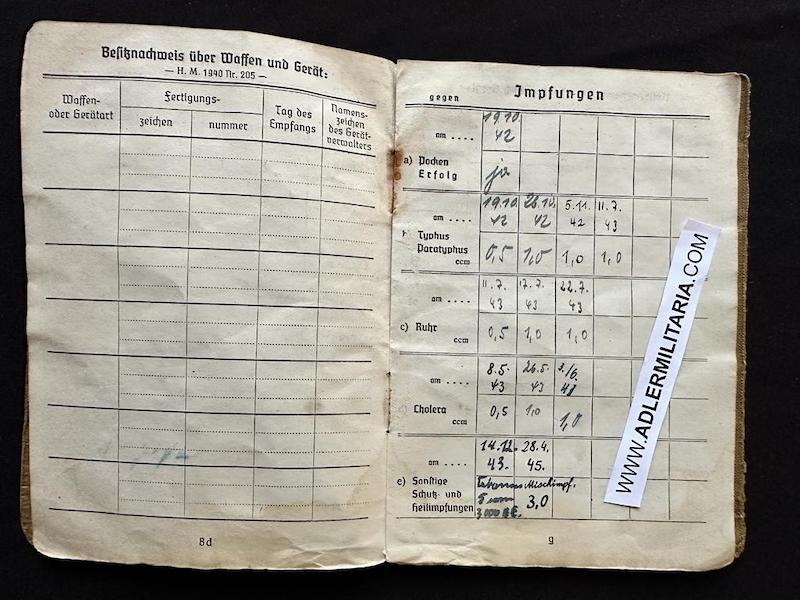 Besitznachweis über Waffen und Gerät:
— H. M. 1940 Nr. 205 —
Waffen- oder Gerätart
Fertigungs-
zeichen
nummer
Tag des Empfangs
Namens-zeichen des Gerät-verwalters
8d
gegen Impfungen
19.10.
am .... 42
a) Pocken
Erfolg ja
19.10. 26.10. 5.11. 11.7.
am .... 42 42 42 43
Typhus
Paratyphus
ccm 0,5 1,0 1,0 1,0
11.7. 17.7. 22.7.
am .... 43 43 43
c) Ruhr
ccm 0,5 1,0 1,0
8.5. 26.5. 3/6.
am .... 43 43 43
Cholera
ccm 0,5 1,0 1,0
14.12. 28.4.
am .... 43. 45.
e) Sonstige
Schutz- und
Heilimpfungen
3,0
9
WWW.ADLERMILITARIA.COM